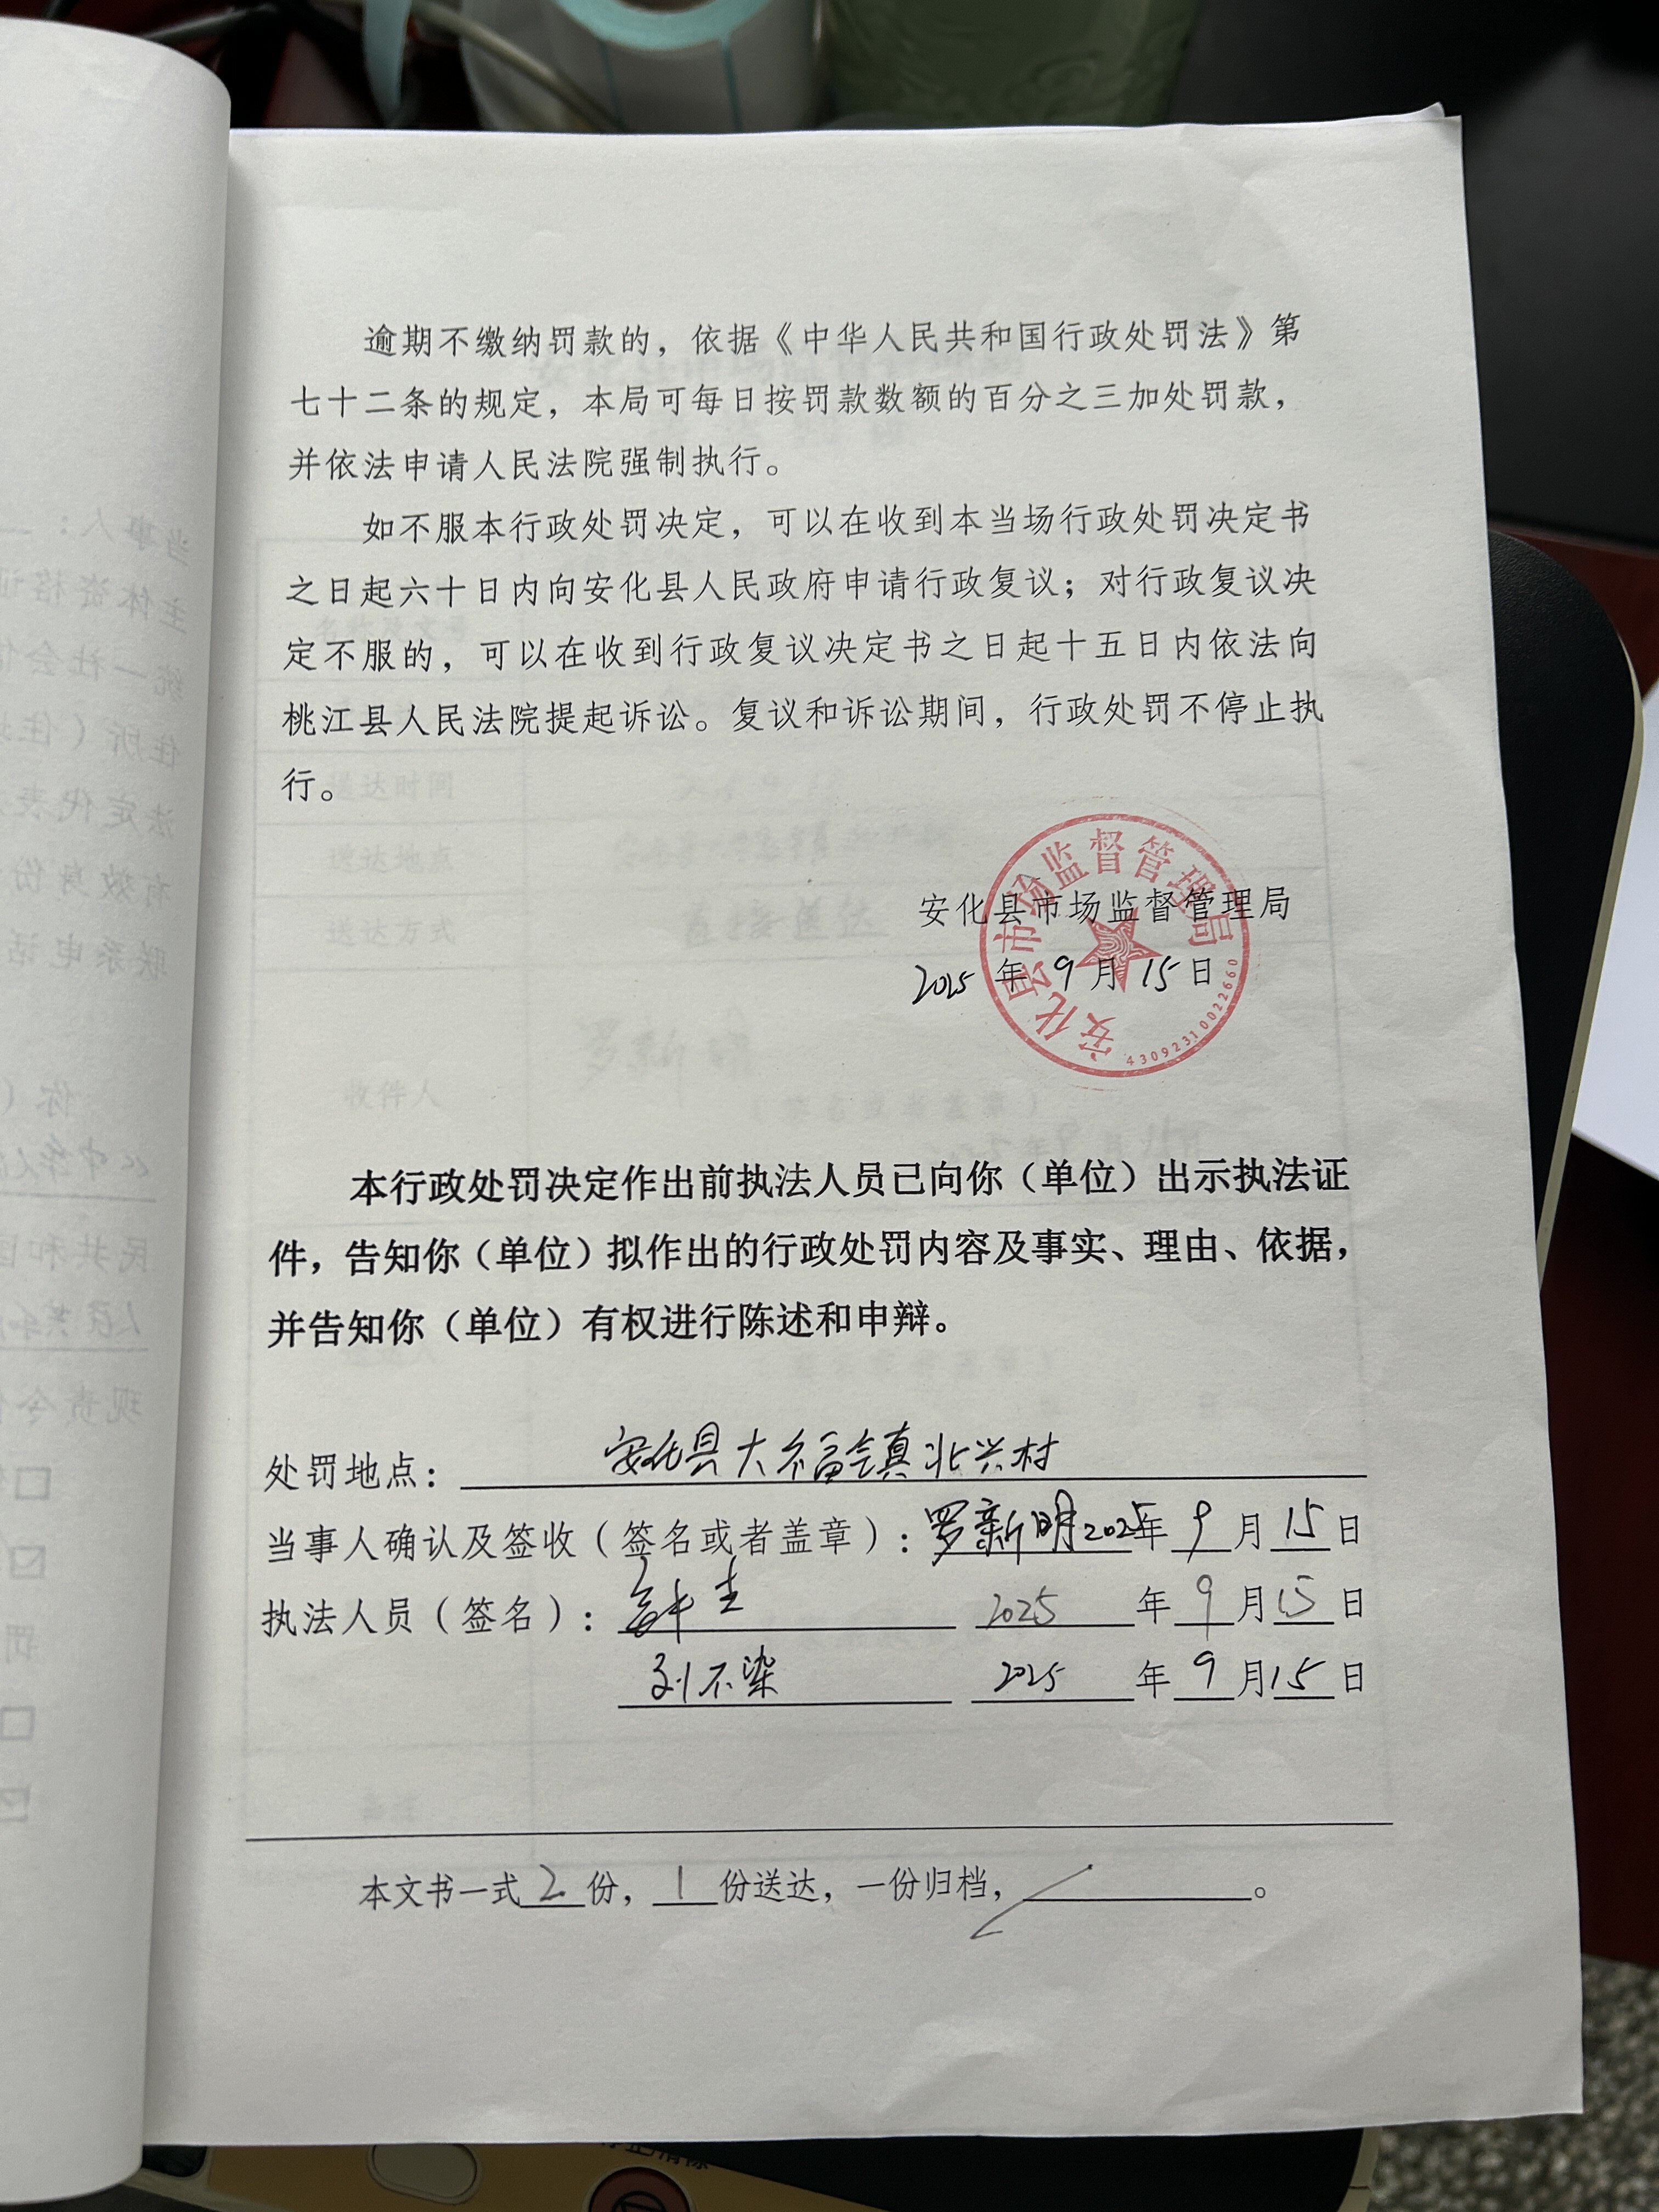 逾期不缴纳罚款的，依据《中华人民共和国行政处罚法》第
七十二条的规定，本局可每日按罚款数额的百分之三加处罚款，
并依法申请人民法院强制执行。
如不服本行政处罚决定，可以在收到本当场行政处罚决定书
之日起六十日内向安化县人民政府申请行政复议；对行政复议决
定不服的，可以在收到行政复议决定书之日起十五日内依法向
桃江县人民法院提起诉讼。复议和诉讼期间，行政处罚不停止执
行。
安化县市场监督管理局
2025 年 9 月 15 日
安化县市场监督管理局
43092310022660
本行政处罚决定作出前执法人员已向你（单位）出示执法证
件，告知你（单位）拟作出的行政处罚内容及事实、理由、依据，
并告知你（单位）有权进行陈述和申辩。
处罚地点：安化县大福镇北兴村
当事人确认及签收（签名或者盖章）：罗新明2025年 9 月 15 日
执法人员（签名）： 2025 年 9 月 15 日
刘不染 2025 年 9 月 15 日
本文书一式 2 份， 1 份送达，一份归档， 。
当事人：
主体资格证
统一社会信
住所（住址
法定代表
有效身份
联系电话
你（
《中华人民
民共和国
人民共和
现责令你
送达时间
送达地点
送达方式
直接送达
收件人
罗新明